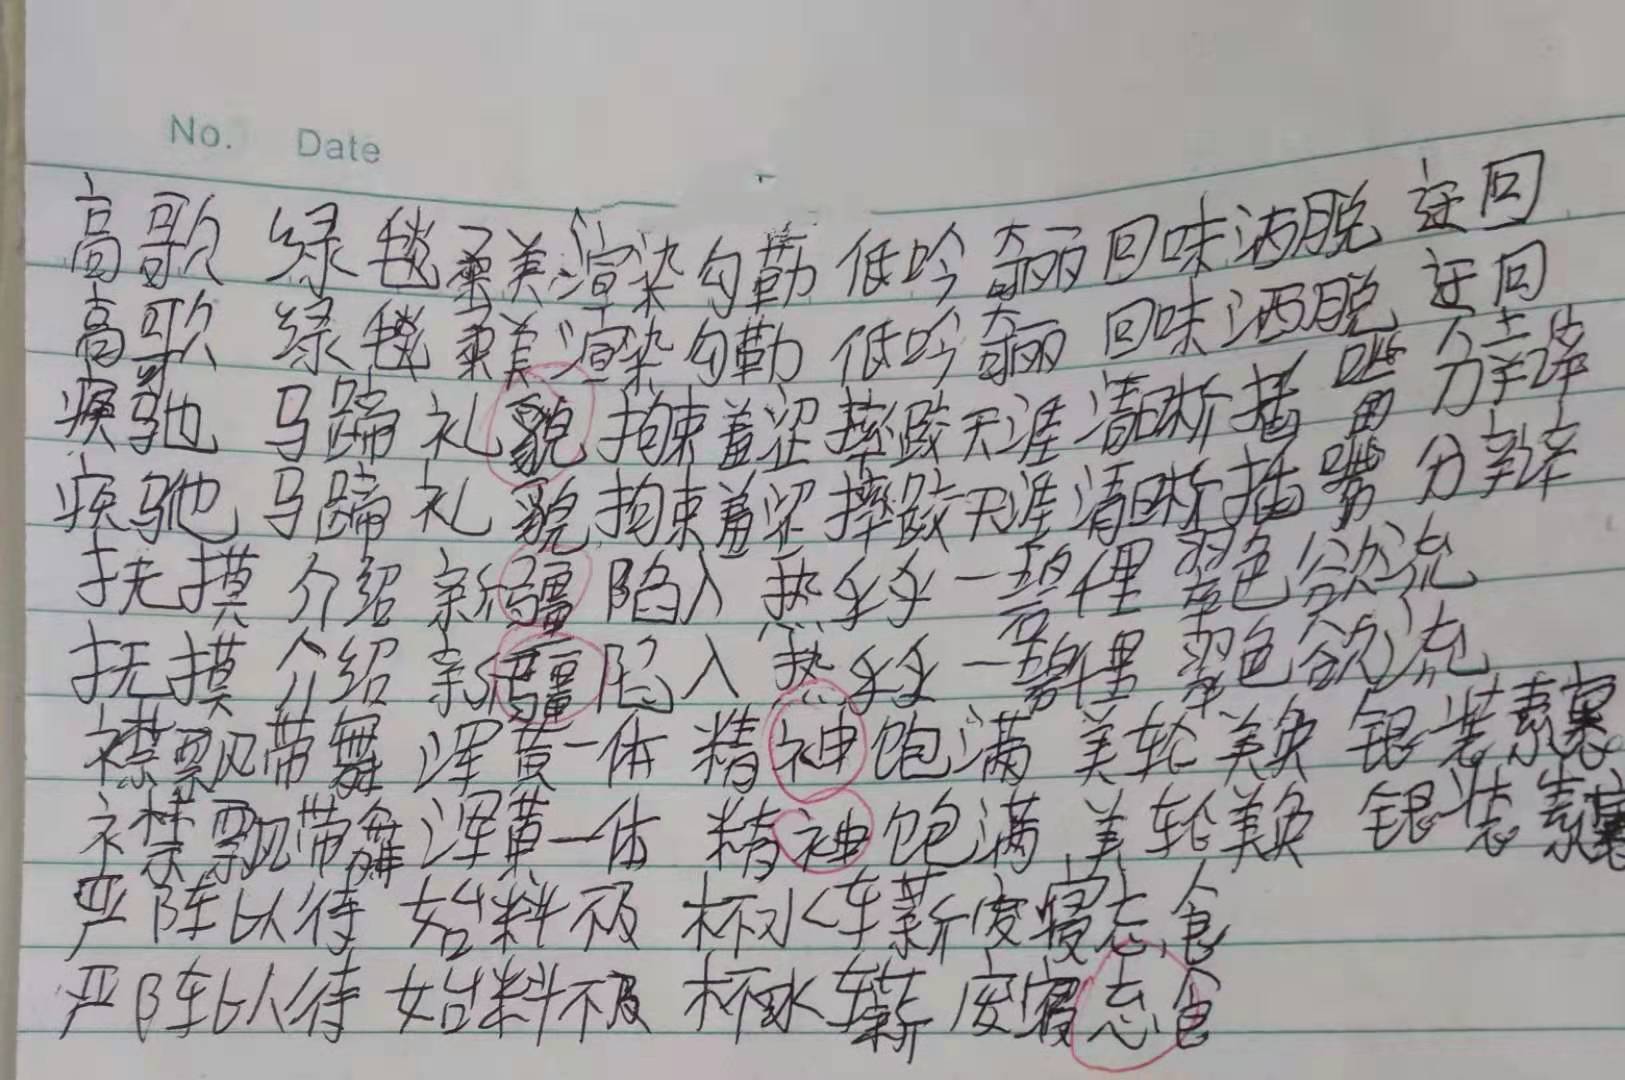 No. Date
高歌 绿毯 柔美 渲染 勾勒 低吟 奇丽 回味 洒脱 迂回
高歌 绿毯 柔美 渲染 勾勒 低吟 奇丽 回味 洒脱 迂回
疾驰 马蹄 礼貌 拘束 羞涩 摔跤 天涯 清晰 插嘴 分辨
疾驰 马蹄 礼貌 拘束 羞涩 摔跤 天涯 清晰 插嘴 分辨
抚摸 介绍 新疆 陷入 热乎乎 一碧千里 翠色欲流
抚摸 介绍 新疆 陷入 热乎乎 一碧千里 翠色欲流
襟飘带舞 浑黄一体 精神饱满 美轮美奂 银装素裹
襟飘带舞 浑黄一体 精神饱满 美轮美奂 银装素裹
严阵以待 始料不及 杯水车薪 废寝忘食
严阵以待 始料不及 杯水车薪 废寝忘食